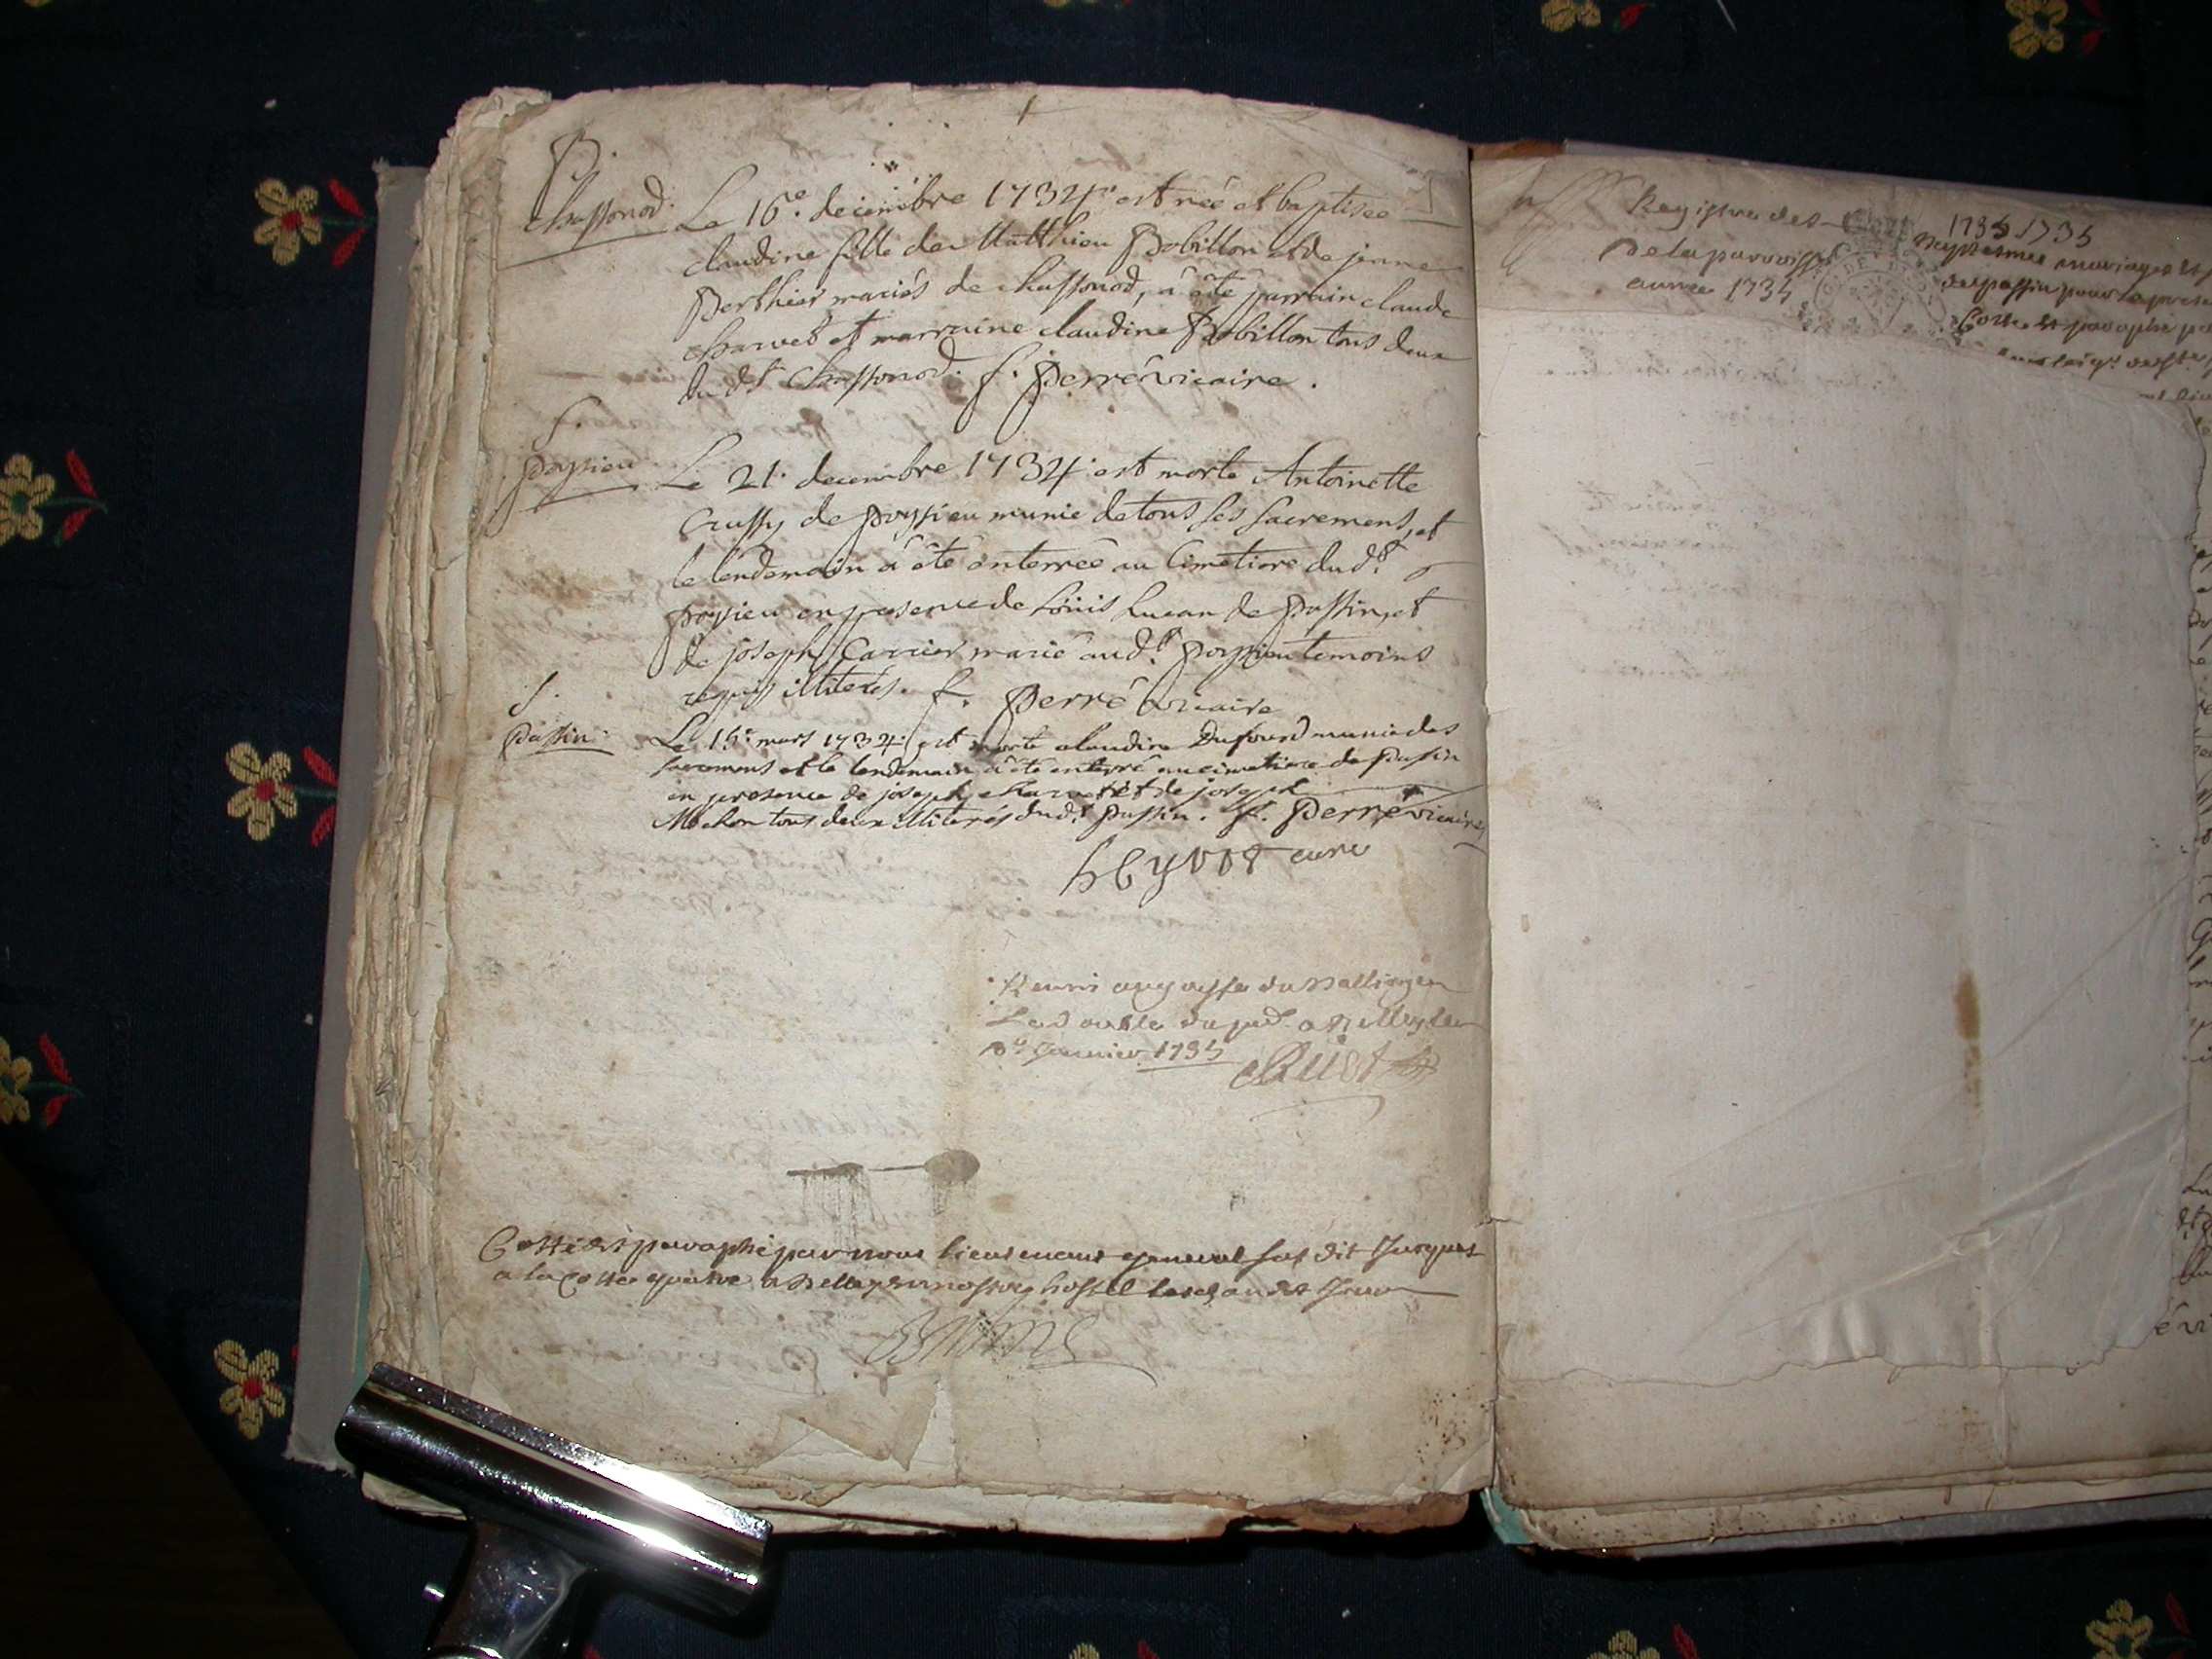 B.
chassonod.
Le 16e. decembre 1734. est née et baptisée
claudine fille de Matthieu Bobillon et de jeanne
Berthier mariés de chassonod, a été parrain claude
charvet et marraine claudine Bobillon tous deux
du dt chassonod. f. Perré vicaire.
S.
poysieu
Le 21. decembre 1734. est morte Antoinette
Crussy de poysieu munie de tous ses sacremens, et
le lendemain a été enterrée au Cimetiere dudt
poysieu en presence de Loüis Lucan de Passin, et
de joseph Carrier marié audt. poysieu temoins
requis illiterés. f. Perré vicaire
S.
Passin
Le 15e mars 1734. est morte claudine Dufour munie des
sacremens et le lendemain a été enterré au cimetiere de Passin
en presence de joseph charvet et de joseph
Mochon tous deux illiterés dudt. Passin. f. Perré vicaire
curé
Remis au greffe du Balliage
Le double du
janvier 1735
Cotté et paraphé par nous lieutenant general sus dit jusques
a la Cotte a Belley en nostre hostel
Registre des
de la parroisse
année 1735
1735 1735
Baptesmes mariages et
de passin pour la
Cotté et paraphé